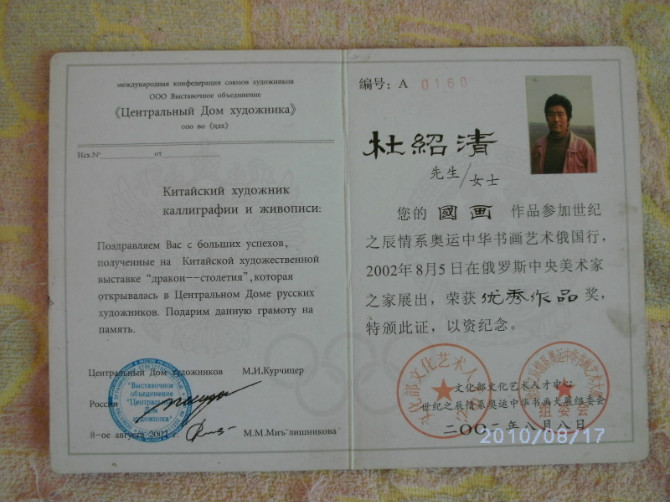 международная конфедерация союзов художников
ООО Выставочное объединение
《Центральный Дом художника》
ооо во (цдх)
Исх.№ от
Китайский художник
каллиграфии и живописи:
Поздравляем Вас с больших успехов,
полученные на Китайской художественной
выставке "дракон--столетия", которая
открывалась в Центральном Доме русских
художников. Подарим данную грамоту на
память.
Центральный Дом художников М.И.Курчицер
"Выставочное
объединение
"Центральный
Дом
художника"
Россия
8-ое август 2002 г. М.М.Мишишникова
编号：A 0160
杜紹清
先生/女士
您的 國画 作品参加世纪
之辰情系奥运中华书画艺术俄国行，
2002年8月5日在俄罗斯中央美术家
之家展出，荣获优秀作品奖，
特颁此证，以资纪念。
文化部文化艺术人才中心
世纪之辰情系奥运中华书画大展组委会
组委会
二〇〇二年八月八日
2010/08/17